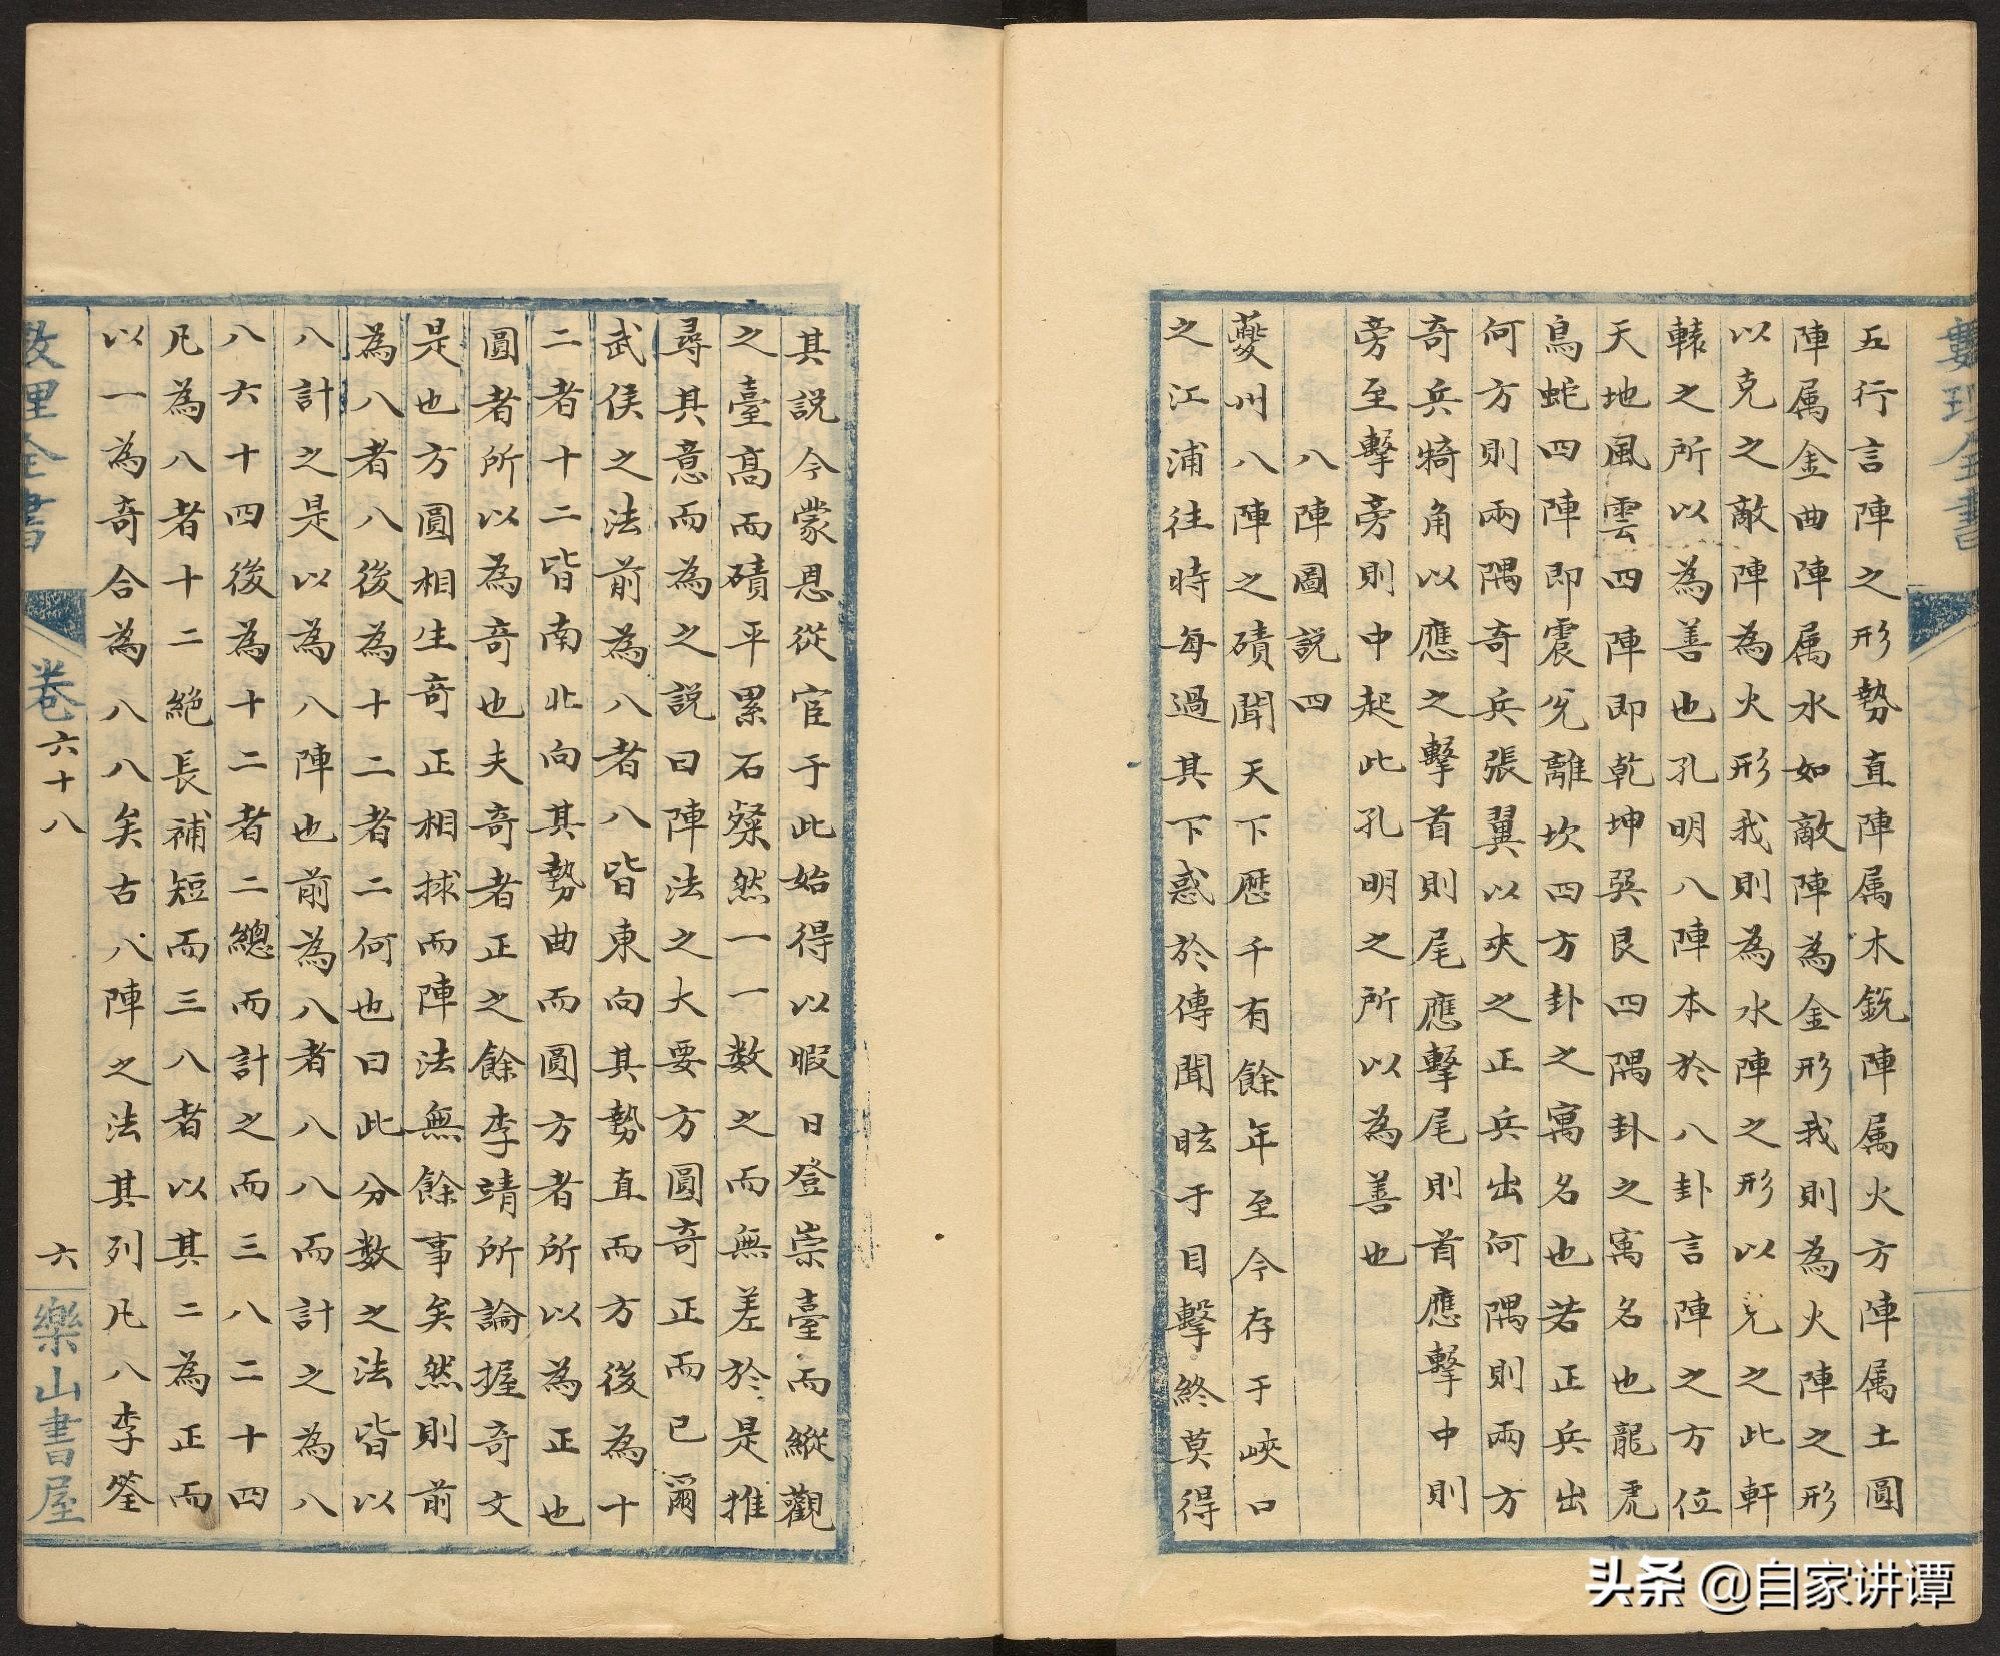 五行言陣之形勢直陣属木銳陣属火方陣属土圓
陣属金曲陣属水如敵陣為金形我則為火陣之形
以克之敵陣為火形我則為水陣之形以克之此軒
轅之所以為善也孔明八陣本於八卦言陣之方位
天地風雲四陣即乾坤巽艮四隅卦之寓名也龍虎
鳥蛇四陣即震兌離坎四方卦之寓名也若正兵出
何方則兩隅奇兵張翼以夾之正兵出何隅則兩方
奇兵犄角以應之擊首則尾應擊尾則首應擊中則
旁至擊旁則中起此孔明之所以為善也
八陣圖説四
夔州八陣之磧聞天下歴千有餘年至今存于峽口
之江浦往時每過其下惑於傳聞眩于目擊終莫得
其説今蒙恩從宦于此始得以暇日登崇臺而縱觀
之臺高而磧平累石粲然一一数之而無差於是推
尋其意而為之説曰陣法之大要方圓奇正而已爾
武侯之法前為八者八皆東向其勢直而方後為十
二者十二皆南北向其勢曲而圓方者所以為正也
圓者所以為奇也夫奇者正之餘李靖所論握奇文
是也方圓相生奇正相捄而陣法無餘事矣然則前
為八者八後為十二者二何也曰此分数之法皆以
八計之是以為八陣也前為八者八八而計之為八
八六十四後為十二者二總而計之而三八二十四
凡為八者十二絶長補短而三八者以其二為正而
以一為奇合為八八矣古八陣之法其列凡八李筌
数理全書
卷六十八
六
樂山書屋
頭条 @自家讲谭